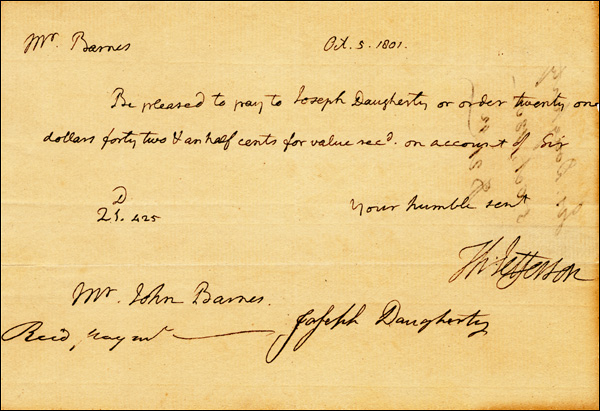 Mr. Barnes Oct. 5. 1801.
Be pleased to pay to Joseph Daugherty or order twenty one
dollars forty two & an half cents for value recd. on account of Sir
D
21.425
Your humble servt
Th: Jefferson
Mr. John Barnes.
Recd, paymt Joseph Daugherty